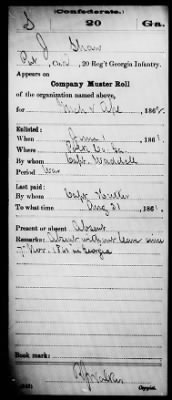 (Confederate.)
S 20 Ga.
J Shaw
Pvt, Co. , 20 Reg't Georgia Infantry.
Appears on
Company Muster Roll
of the organization named above,
for Mch & Apl, 186 .
Enlisted:
When , 186 .
Where Polk Co. Ga.
By whom Capt. Waddell
Period War
Last paid:
By whom Capt.
To what time Aug 31, 186 .
Present or absent Absent
Remarks: Absent without leave since
Nov. in Georgia
Book mark:
Copyist.